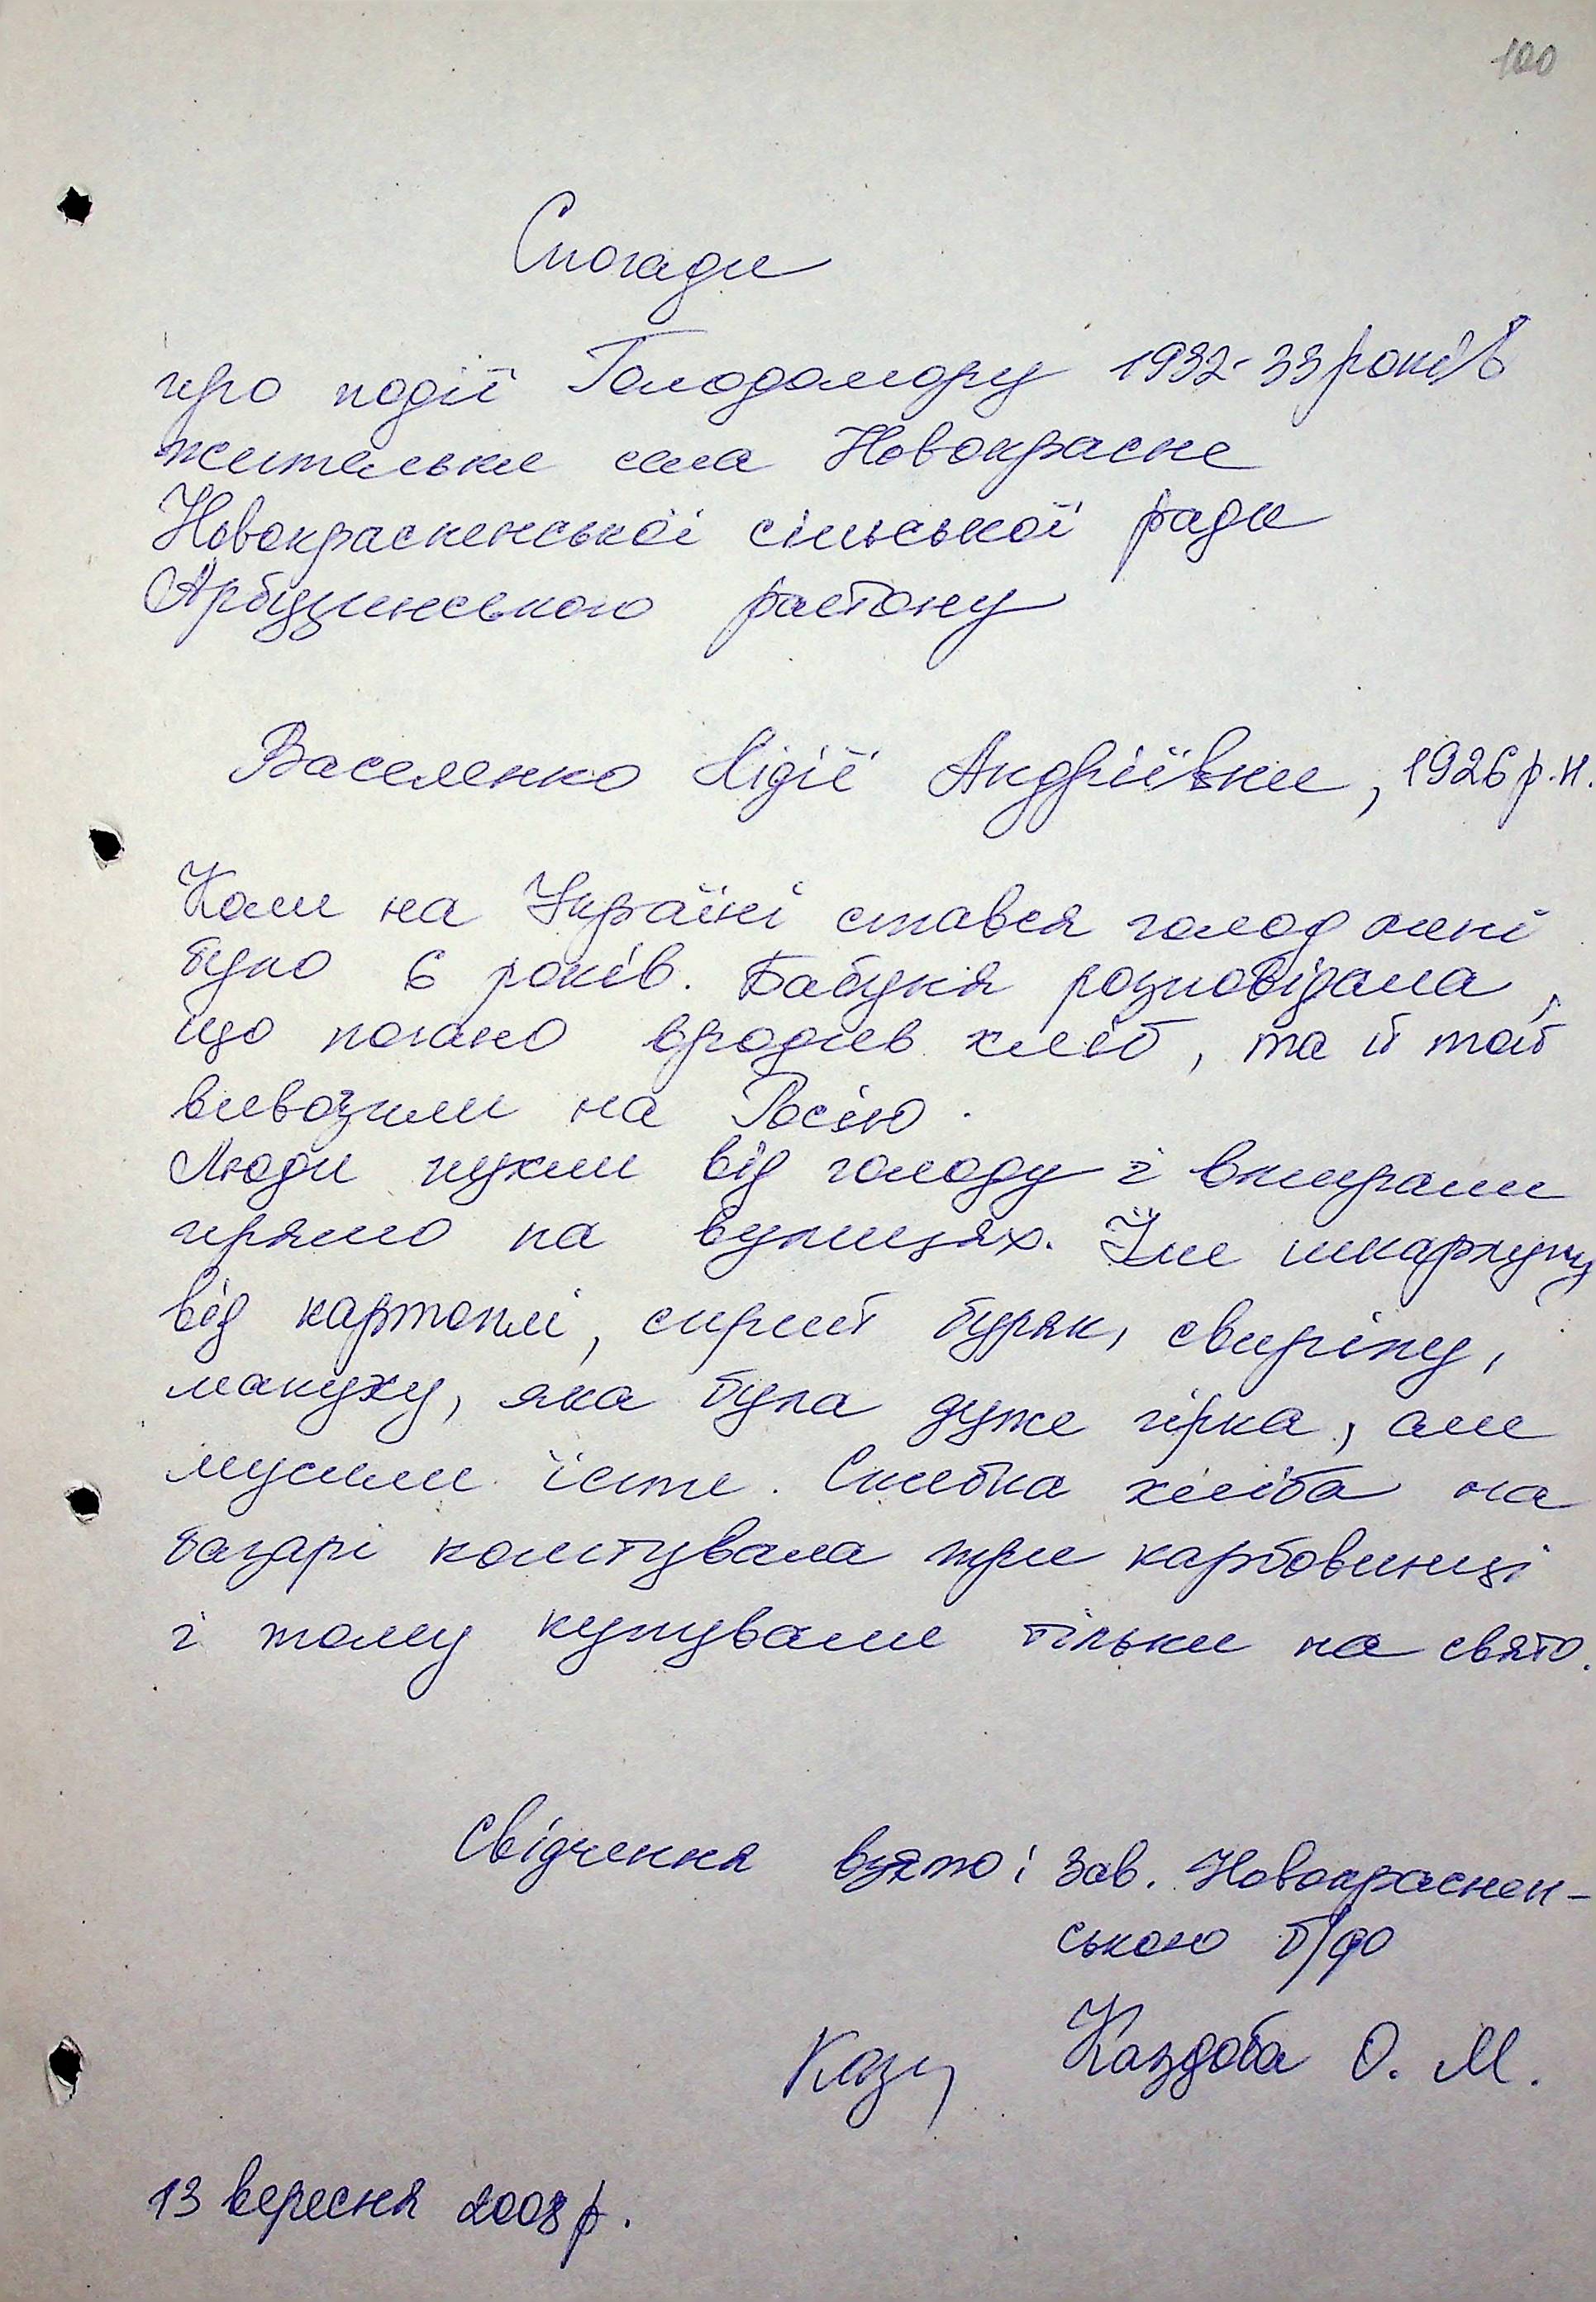 100
Спогади
про події Голодомору 1932-33 років
жительки села Новокрасне
Новокрасненської сільської ради
Арбузинського району
Василенко Лідії Андріївни, 1926 р.н.
Коли на Україні стався голод мені
було 6 років. Бабуня розповідала,
що погано вродив хліб, та й той
вивозили на Росію.
Люди пухли від голоду і вмирали
прямо на вулицях. Їли шкарлупу
від картоплі, сирий буряк, свиріпу,
макуху, яка була дуже гірка, але
мусили їсти. Скибка хліба на
базарі коштувала три карбовинці
і тому купували тільки на свято.
Свідчення взято: Зав. Новокраснен-
ською б/ф
Каздоба О. М.
13 вересня 2008 р.